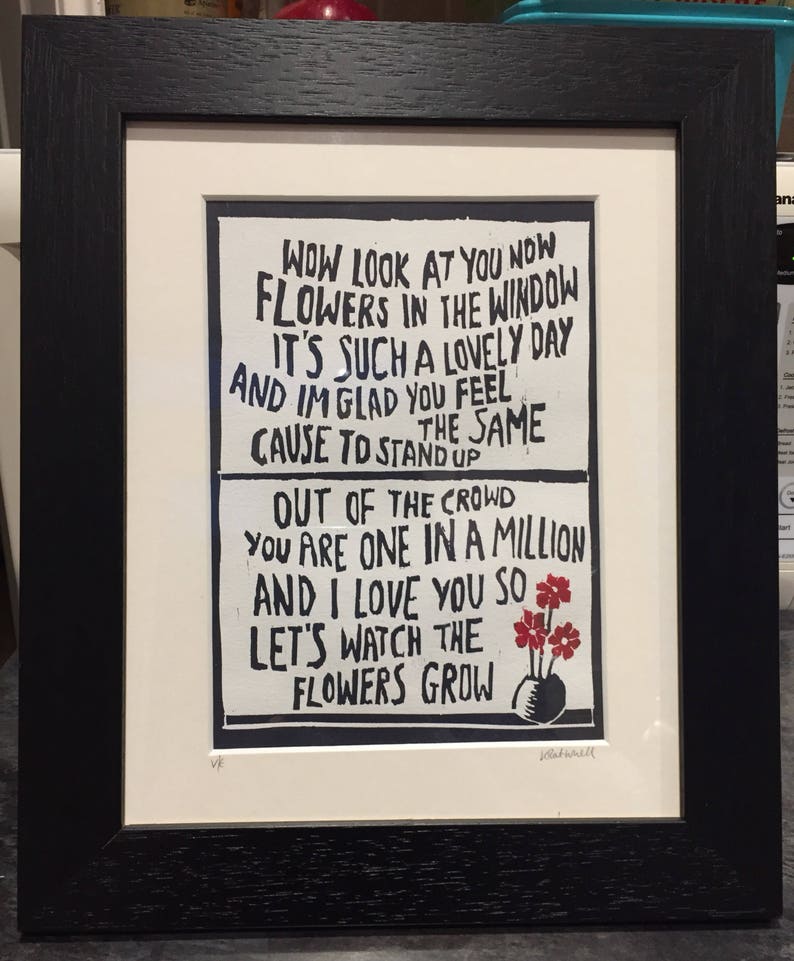 WOW LOOK AT YOU NOW
FLOWERS IN THE WINDOW
IT'S SUCH A LOVELY DAY
AND IM GLAD YOU FEEL
THE SAME
CAUSE TO STAND UP
OUT OF THE CROWD
YOU ARE ONE IN A MILLION
AND I LOVE YOU SO
LET'S WATCH THE
FLOWERS GROW
V/E